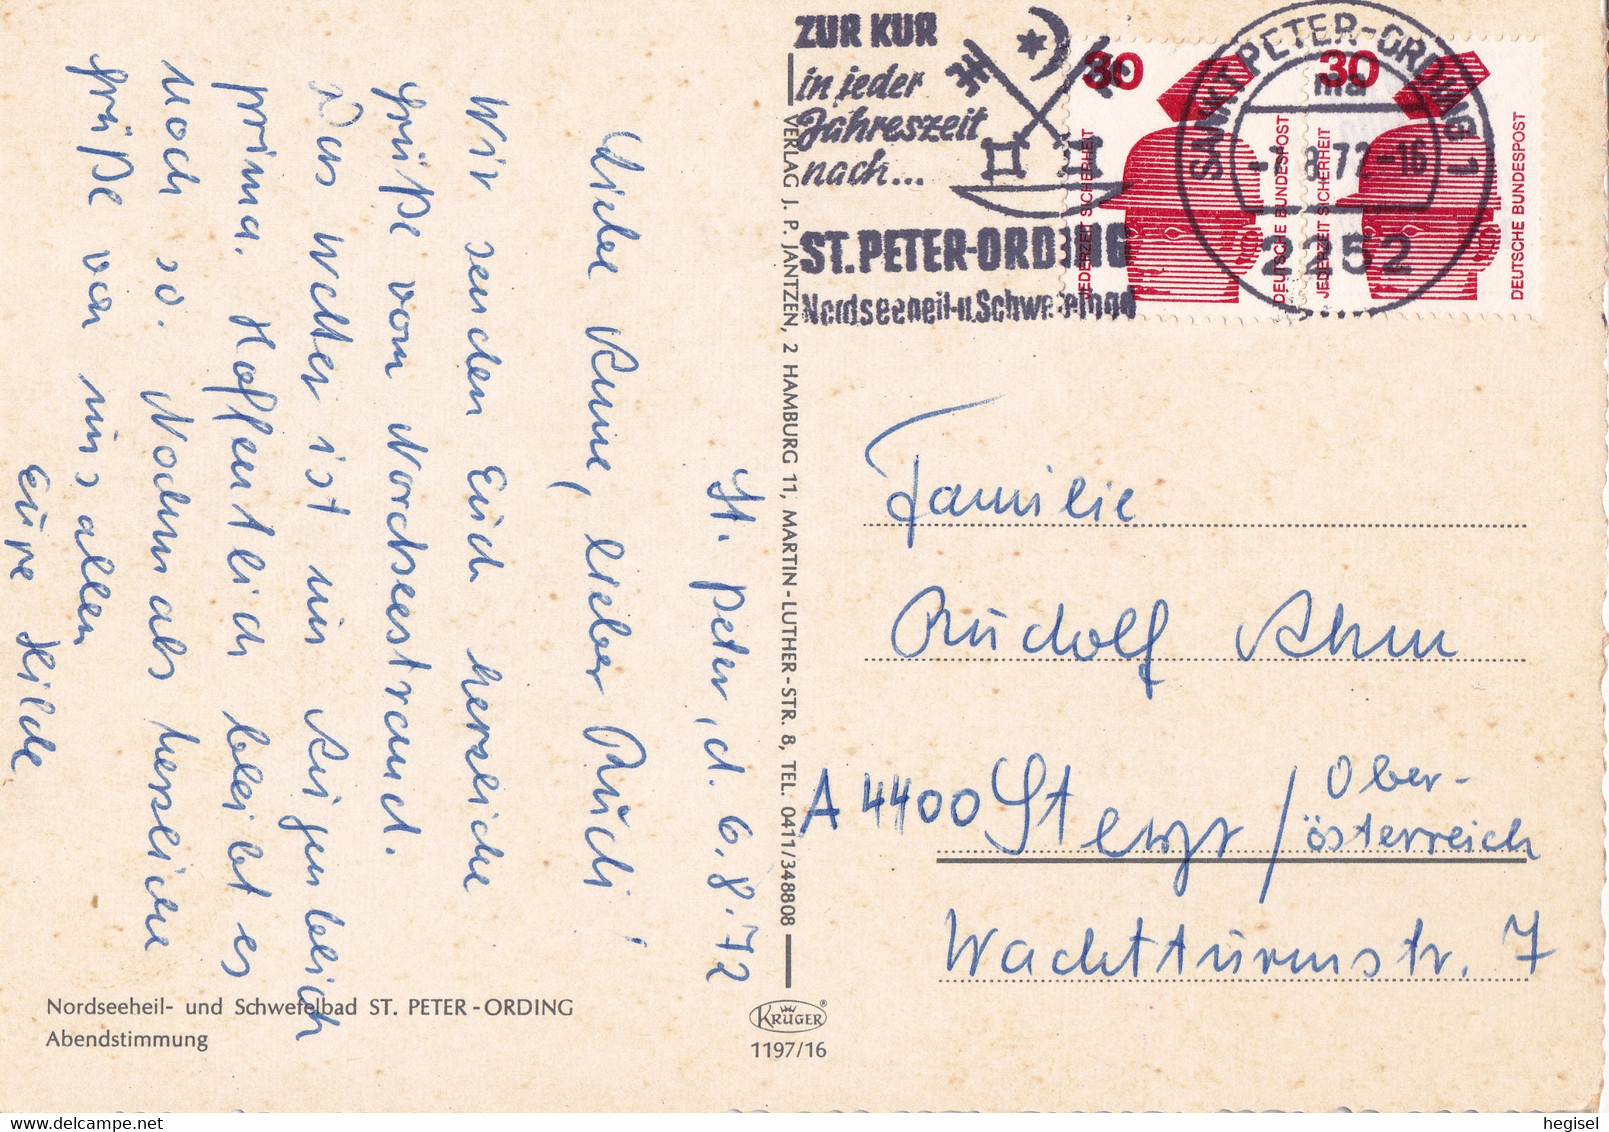 St. Peter, d. 6.8.72
Liebe Anne, lieber Rudi!
Wir senden Euch herzliche
Grüße vom Nordseestrand.
Das Wetter ist nun augenblich
prima. Hoffentlich bleibt es
noch so. Nochmals herzliche
Grüße von uns allen
Eure Hilde
Nordseeheil- und Schwefelbad ST. PETER-ORDING
Abendstimmung
VERLAG J. P. JANTZEN, 2 HAMBURG 11, MARTIN-LUTHER-STR. 8, TEL. 0411/348808
KRÜGER
1197/16
ZUR KUR
in jeder
Jahreszeit
nach...
ST. PETER-ORDING
Nordseeheil-u.Schwefelbad
30
JEDERZEIT SICHERHEIT
DEUTSCHE BUNDESPOST
30
JEDERZEIT SICHERHEIT
DEUTSCHE BUNDESPOST
SANKT PETER-ORDING 1
ma
-7.8.72-16
2252
Familie
Rudolf Ahm
A 4400 Steyr / Ober-
österreich
Wachtturmstr. 7
hegisel